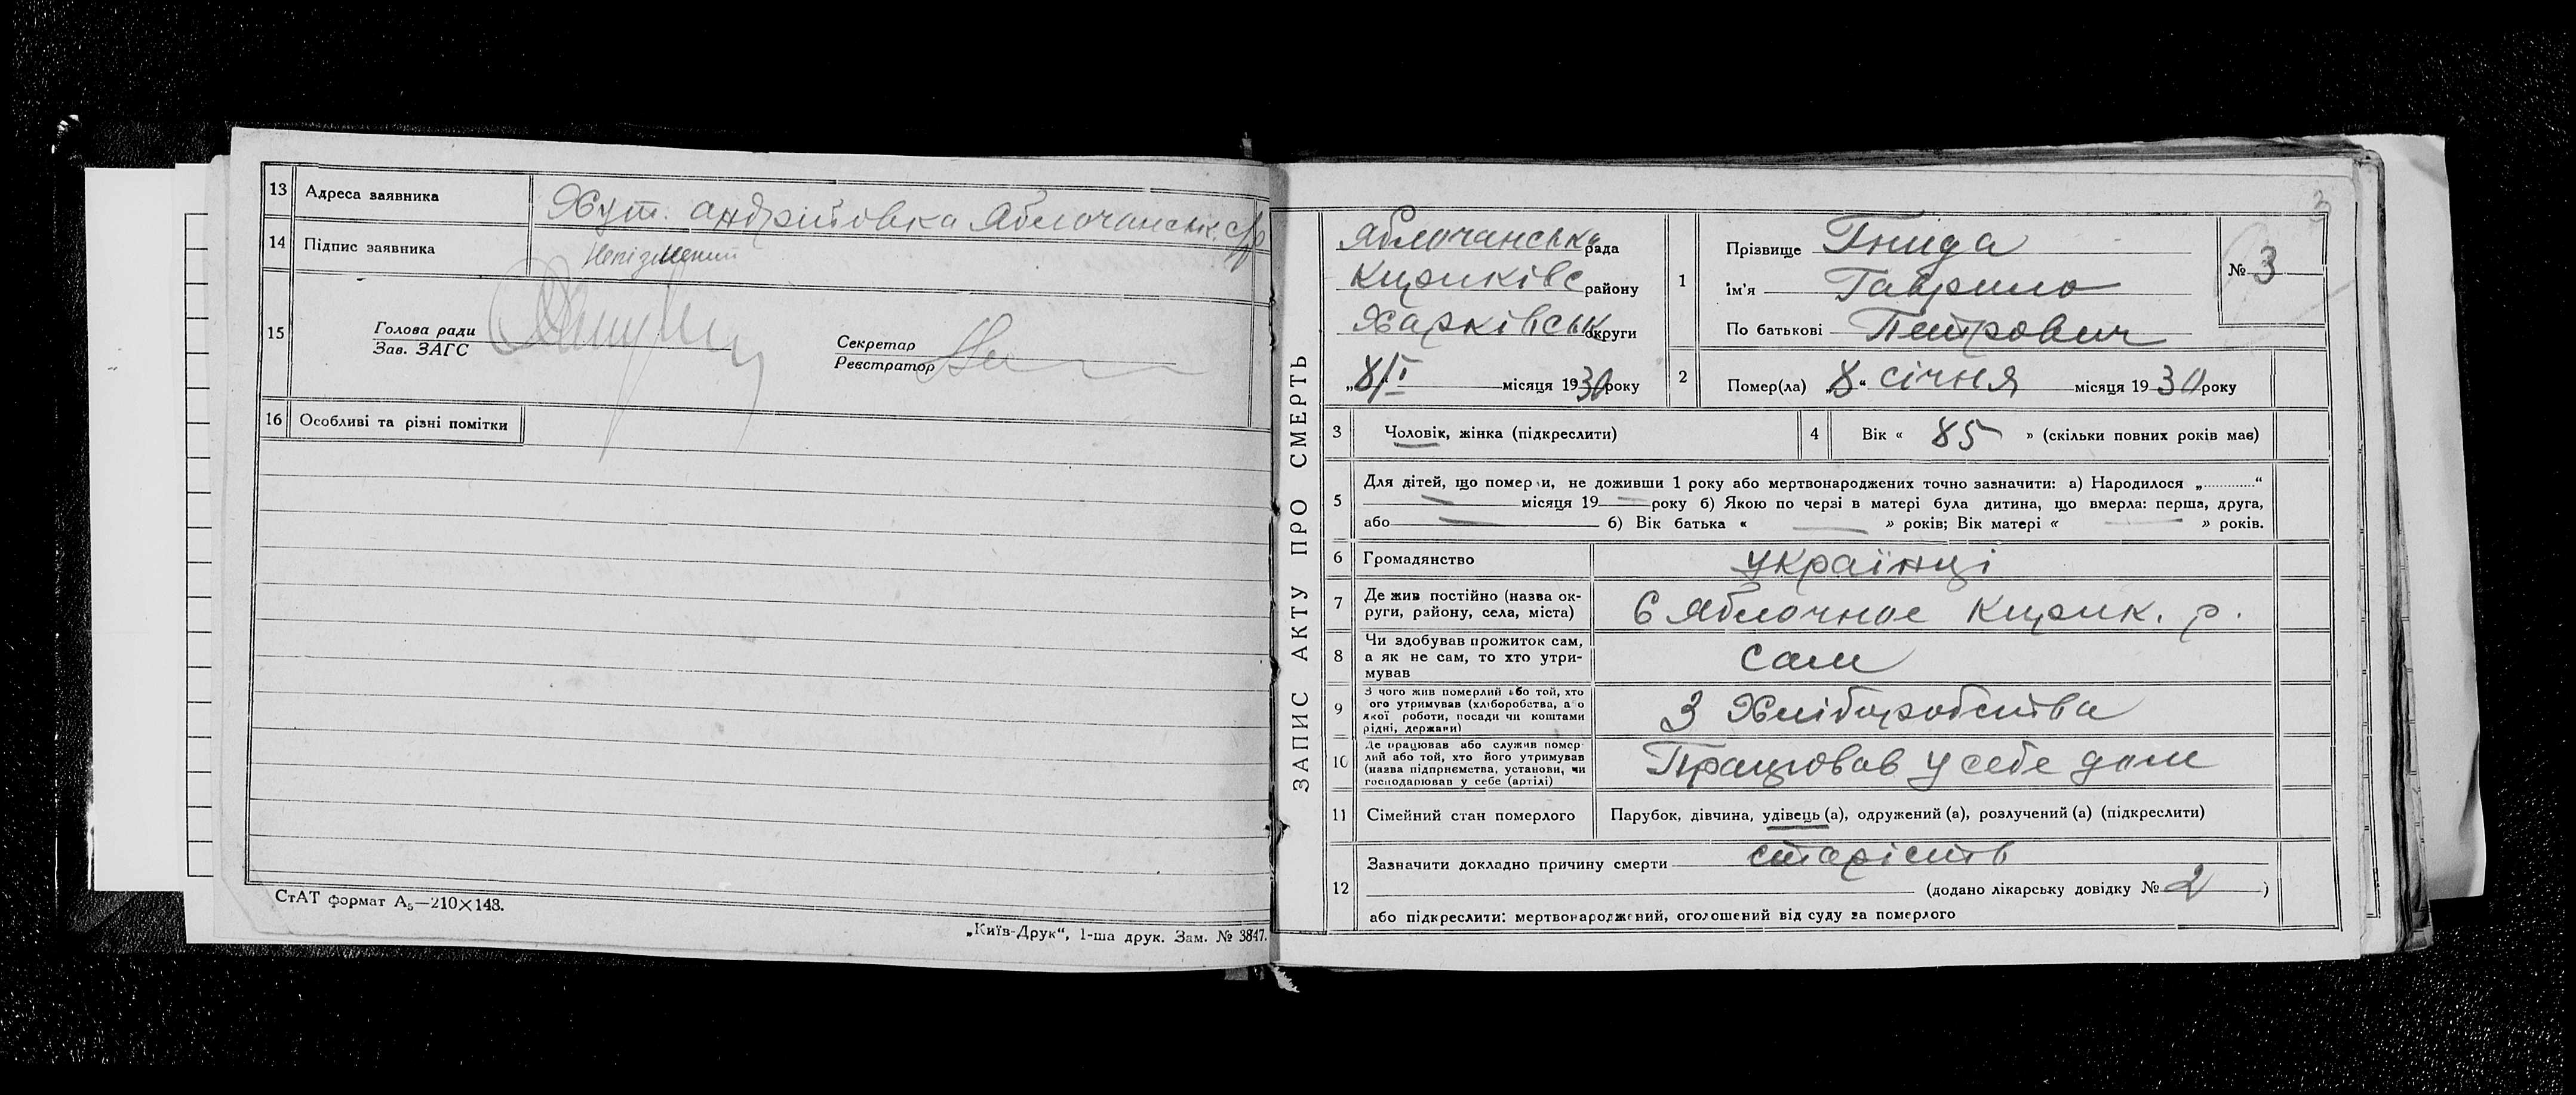 13 Адреса заявника Хут. андрійовка Яблочанськ. с/р
14 Підпис заявника Неписменний
15 Голова ради
Зав. ЗАГС
Секретар
Реєстратор
16 Особливі та різні помітки
СтАТ формат А₅—210×148.
„Київ-Друк“, 1-ша друк. Зам. № 3847.
3
ЗАПИС АКТУ ПРО СМЕРТЬ
Яблочанська рада
Кириківс району
Харківськ округи
„8/I місяця 1930 року
1 Прізвище Гнида
ім'я Гаврило
По батькові Петрович
№ 3
2 Помер(ла) „8“ січня місяця 1930 року
3 Чоловік, жінка (підкреслити)
4 Вік « 85 » (скільки повних років має)
5 Для дітей, що померли, не доживши 1 року або мертвонароджених точно зазначити: а) Народилося „............“
— місяця 19 — року б) Якою по черзі в матері була дитина, що вмерла: перша, друга,
або — б) Вік батька « — » років; Вік матері « — » років.
6 Громадянство українці
7 Де жив постійно (назва ок-
руги, району, села, міста) С Яблочное Кирик. р.
8 Чи здобував прожиток сам,
а як не сам, то хто утри-
мував сам
9 З чого жив померлий або той, хто
ого утримував (хліборобства, а о
якої роботи, посади чи коштами
рідні, держави) З Хліборобства
10 Де працював або служив помер-
лий або той, хто його утримував
(назва підприємства, установи, чи
господарював у себе (артілі) Працював у себе дом
11 Сімейний стан померлого Парубок, дівчина, удівець (а), одружений (а), розлучений (а) (підкреслити)
12 Зазначити докладно причину смерти старість
(додано лікарську довідку № 2 )
або підкреслити: мертвонароджений, оголошений від суду за померлого